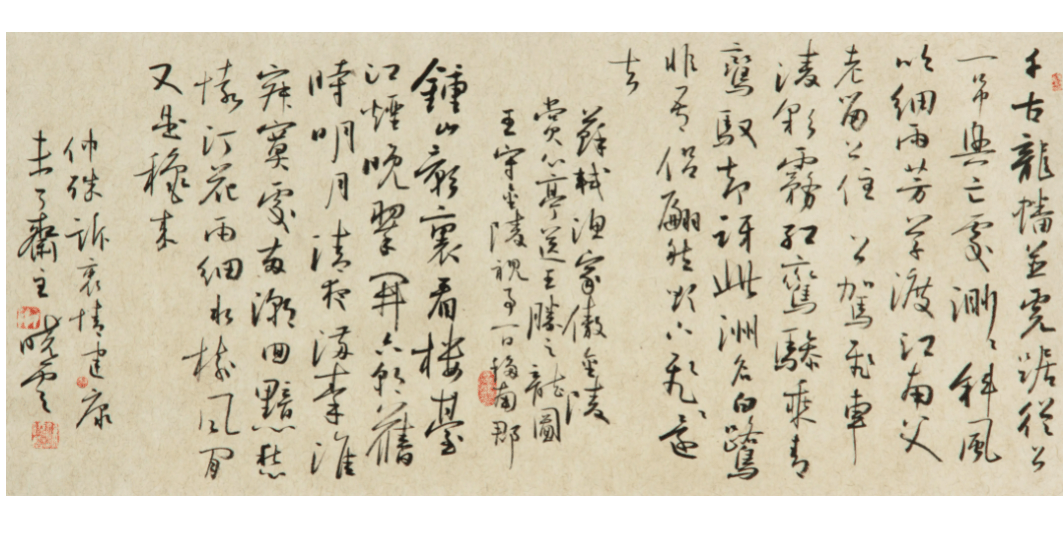 千古龍蟠並虎踞從公
一弔興亡處渺渺斜風
吹細雨芳草渡江南父
老留公住公駕飛車
凌彩霧紅鸞驂乘青
鸞馭却訝此洲名白鷺
非吾侶翩然欲下飛還
去
蘇軾漁家傲金陵
賞心亭送王勝之龍圖
王守金陵視事一日移南郡
鍾山影裏看樓臺
江煙晚翠開六朝舊
時明月清夜滿秦淮
寂寞處兩潮回黯愁
懷汀花雨細水樹風閒
又是穐來
仲殊訴衷情建康
未了齋主曉雲